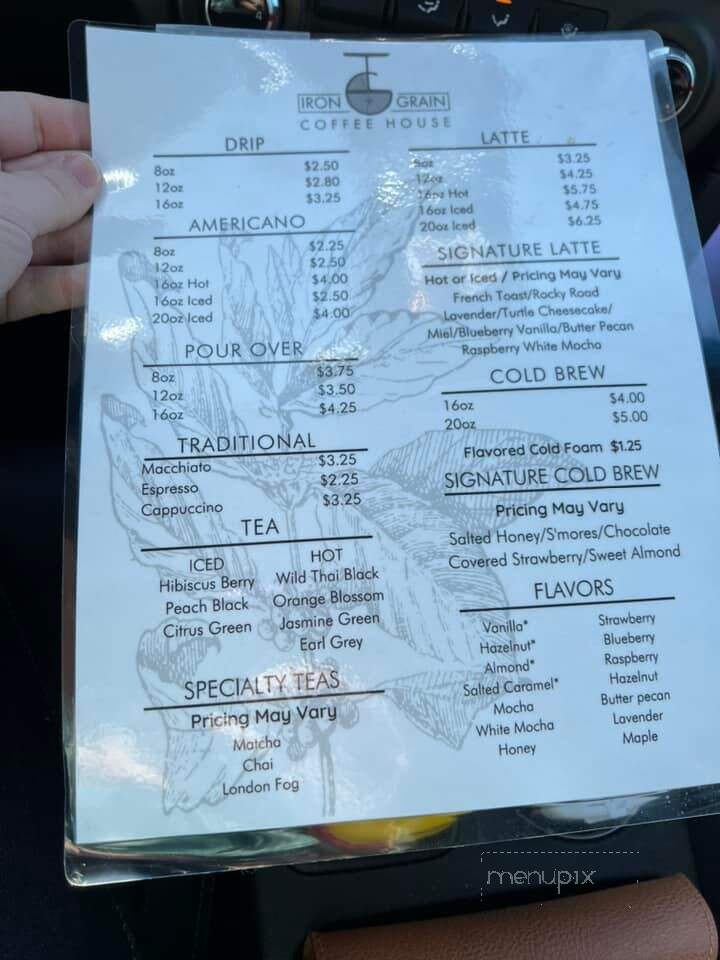 IRON GRAIN
COFFEE HOUSE
DRIP
8oz $2.50
12oz $2.80
16oz $3.25
AMERICANO
8oz $2.25
12oz $2.50
16oz Hot $4.00
16oz Iced $2.50
20oz Iced $4.00
POUR OVER
8oz $3.75
12oz $3.50
16oz $4.25
TRADITIONAL
Macchiato $3.25
Espresso $2.25
Cappuccino $3.25
TEA
ICED
Hibiscus Berry
Peach Black
Citrus Green
HOT
Wild Thai Black
Orange Blossom
Jasmine Green
Earl Grey
SPECIALTY TEAS
Pricing May Vary
Matcha
Chai
London Fog
LATTE
8oz $3.25
12oz $4.25
16oz Hot $5.75
16oz Iced $4.75
20oz Iced $6.25
SIGNATURE LATTE
Hot or Iced / Pricing May Vary
French Toast/Rocky Road
Lavender/Turtle Cheesecake/
Miel/Blueberry Vanilla/Butter Pecan
Raspberry White Mocha
COLD BREW
16oz $4.00
20oz $5.00
Flavored Cold Foam $1.25
SIGNATURE COLD BREW
Pricing May Vary
Salted Honey/S'mores/Chocolate
Covered Strawberry/Sweet Almond
FLAVORS
Vanilla*
Hazelnut*
Almond*
Salted Caramel*
Mocha
White Mocha
Honey
Strawberry
Blueberry
Raspberry
Hazelnut
Butter pecan
Lavender
Maple
menupix